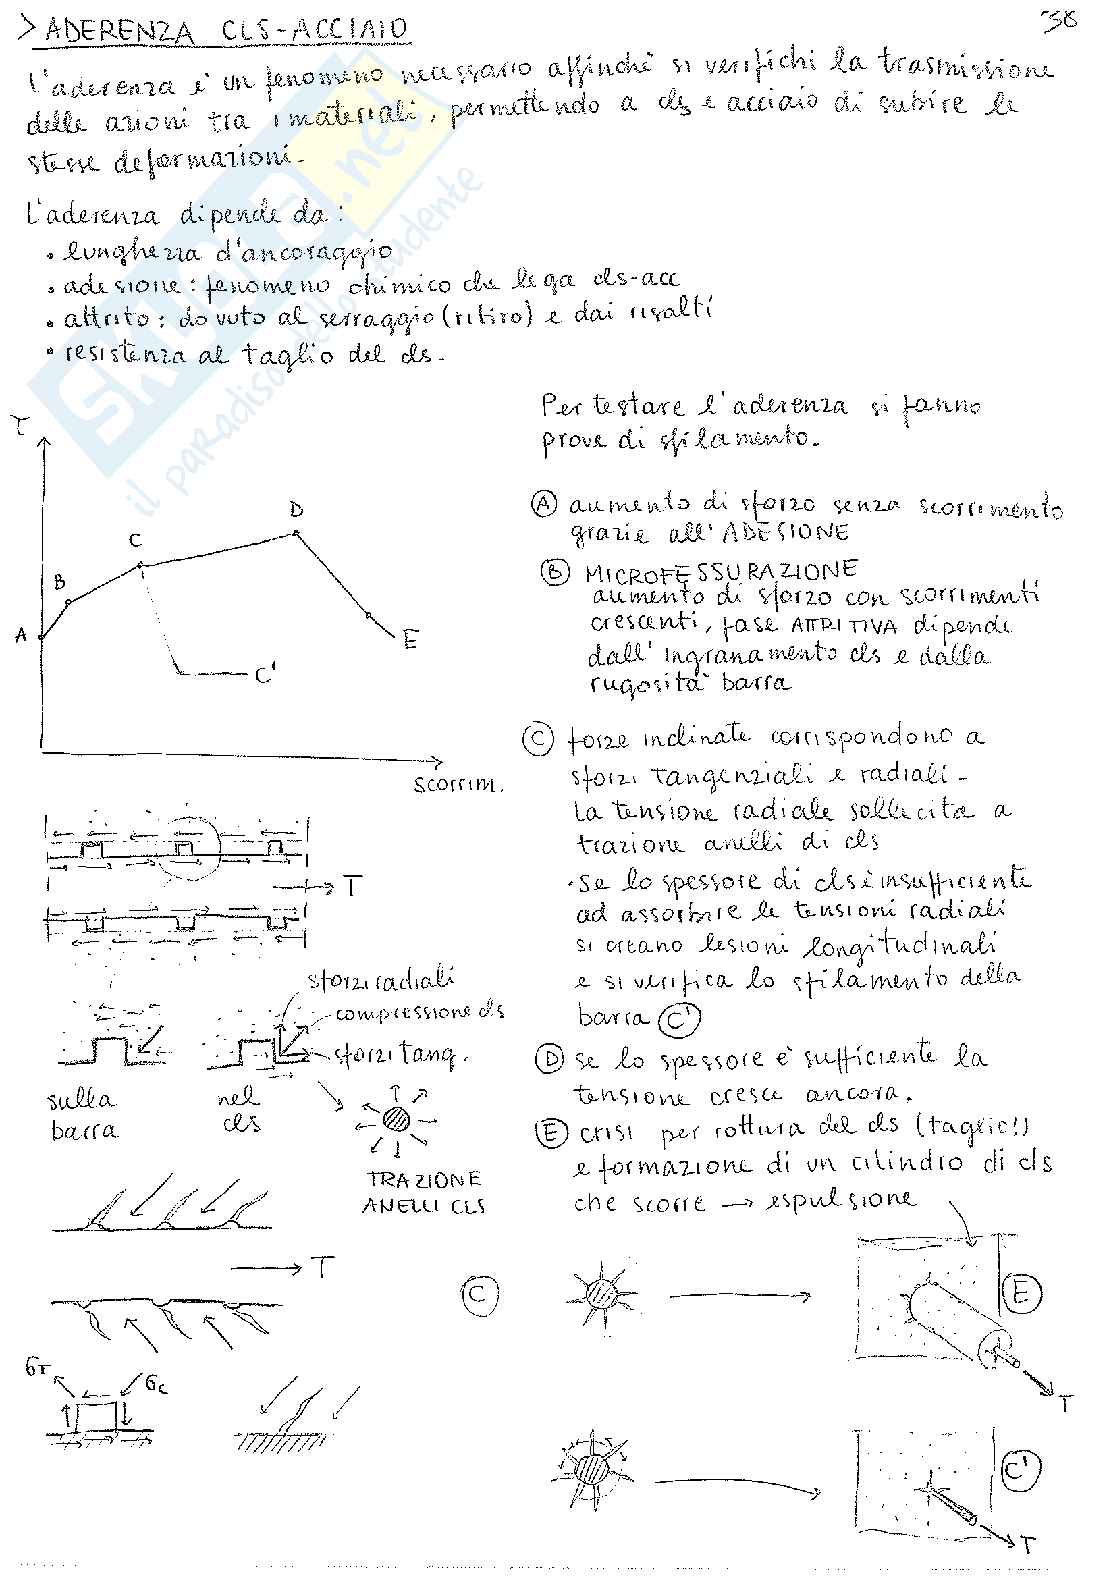 > ADERENZA CLS-ACCIAIO
38
L'aderenza è un fenomeno necessario affinchè si verifichi la trasmissione
delle azioni tra i materiali, permettendo a cls e acciaio di subire le
stesse deformazioni.
L'aderenza dipende da:
• lunghezza d'ancoraggio
• adesione: fenomeno chimico che lega cls-acc
• attrito: dovuto al serraggio (ritiro) e dai risalti
• resistenza al taglio del cls.
SKUOLA.net
il paradiso dello studente
Per testare l'aderenza si fanno
prove di sfilamento.
τ
A
B
C
D
E
C'
SCORRIM.
A aumento di sforzo senza scorrimento
grazie all'ADESIONE
B MICROFESSURAZIONE
aumento di sforzo con scorrimenti
crescenti, fase ATTRITIVA dipende
dall'ingranamento cls e dalla
rugosità barra
C forze inclinate corrispondono a
sforzi tangenziali e radiali.
la tensione radiale sollecita a
trazione anelli di cls
• Se lo spessore di cls è insufficiente
ad assorbire le tensioni radiali
si creano lesioni longitudinali
e si verifica lo sfilamento della
barra C'
D se lo spessore è sufficiente la
tensione cresce ancora.
E crisi per rottura del cls (taglio!)
e formazione di un cilindro di cls
che scorre → espulsione
T
sforzi radiali
compressione cls
sforzi tang.
sulla
barra
nel
cls
TRAZIONE
ANELLI CLS
T
C
E
T
σT
σc
C'
T